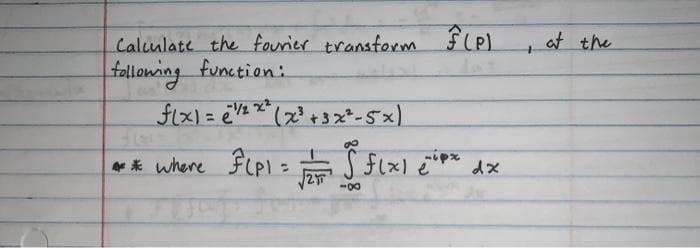 Calculate the fourier transform f̂(p) , of the
following function:
f(x) = e^(-1/2 x²) (x³ + 3x² - 5x)
** where f̂(p) = 1/√2π ∫_{-∞}^{∞} f(x) e^(-ipx) dx